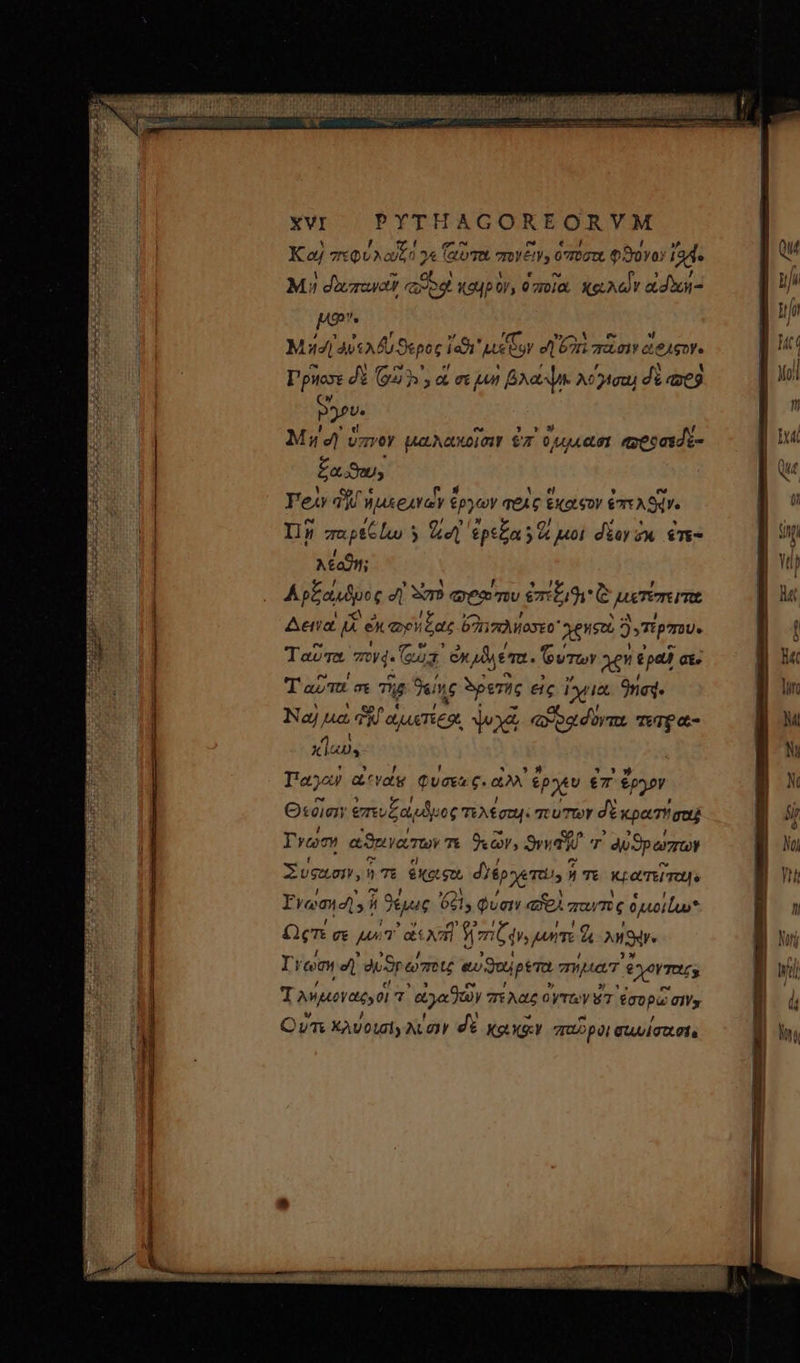 XVI PYTHAGOREORVM
Καὶ πεφύλαξό γε ταῦτα πονεῖν, ὁπόσα φθόνον ἴσχει
Μὴ δαπανᾷν παρὰ καιρὸν, ὁποῖα καλῶν ἀδαή-
μων.
Μηδ' ἀνελεύθερος ἴσθι· μέτρον δ' ἐπὶ πᾶσιν ἄριστον.
Πρῆσσε δὲ ταῦθ', ἅ σε μὴ βλάψῃ· λόγισαι δὲ πρὸ
ἔργου.
Μηδ' ὕπνον μαλακοῖσιν ἐπ' ὄμμασι προσδέ-
ξασθαι,
Πρὶν τῶν ἡμερινῶν ἔργων τρὶς ἕκαστον ἐπελθεῖν.
Πῆ παρέβην; τί δ' ἔρεξα; τί μοι δέον οὐκ ἐτε-
λέσθη;
Ἀρξάμενος δ' ἀπὸ πρώτου ἐπέξιθι· καὶ μετέπειτα
Δεινὰ μὲν ἐκπρήξας ἐπιπλήσσεο· χρηστὰ δὲ, τέρπου.
Ταῦτα πόνει. ταῦτ' ἐκμελέτα. τούτων χρὴ ἐρᾷν σε.
Ταῦτά σε τῆς θείης ἀρετῆς εἰς ἴχνια θήσει.
Ναὶ μὰ τὸν ἁμετέρᾳ ψυχᾷ παραδόντα τετρα-
κτὺν,
Παγὰν ἀενάου φύσεως. ἀλλ' ἔρχευ ἐπ' ἔργον
Θεοῖσιν ἐπευξάμενος τελέσαι. τούτων δὲ κρατήσας
Γνώσῃ ἀθανάτων τε θεῶν, θνητῶν τ' ἀνθρώπων
Σύστασιν, ἥ τε ἕκαστα διέρχεται, ἥ τε κρατεῖται.
Γνώσῃ δ', ᾗ θέμις ἐστὶ, φύσιν περὶ παντὸς ὁμοίην·
Ὥστε σε μήτ' ἄελπτ' ἐλπίζειν, μήτε τι λήθειν.
Γνώσῃ δ' ἀνθρώπους αὐθαίρετα πήματ' ἔχοντας,
Τλήμονας, οἵ τ' ἀγαθῶν πέλας ὄντων οὔτ' ἐσορῶσιν,
Οὔτε κλύουσι, λύσιν δὲ κακῶν παῦροι συνίσασι.